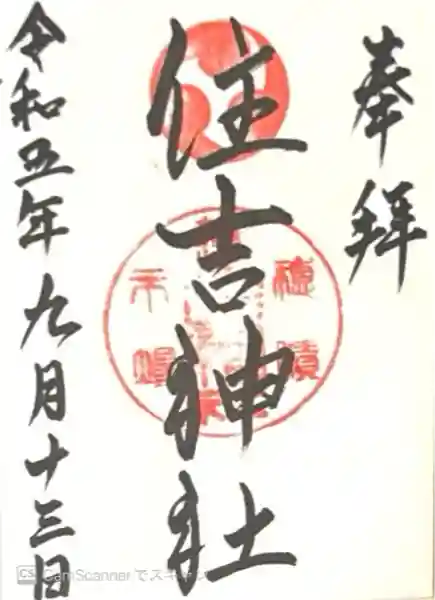 奉拝
住吉神社
令和五年九月十三日
CS CamScanner でスキャン